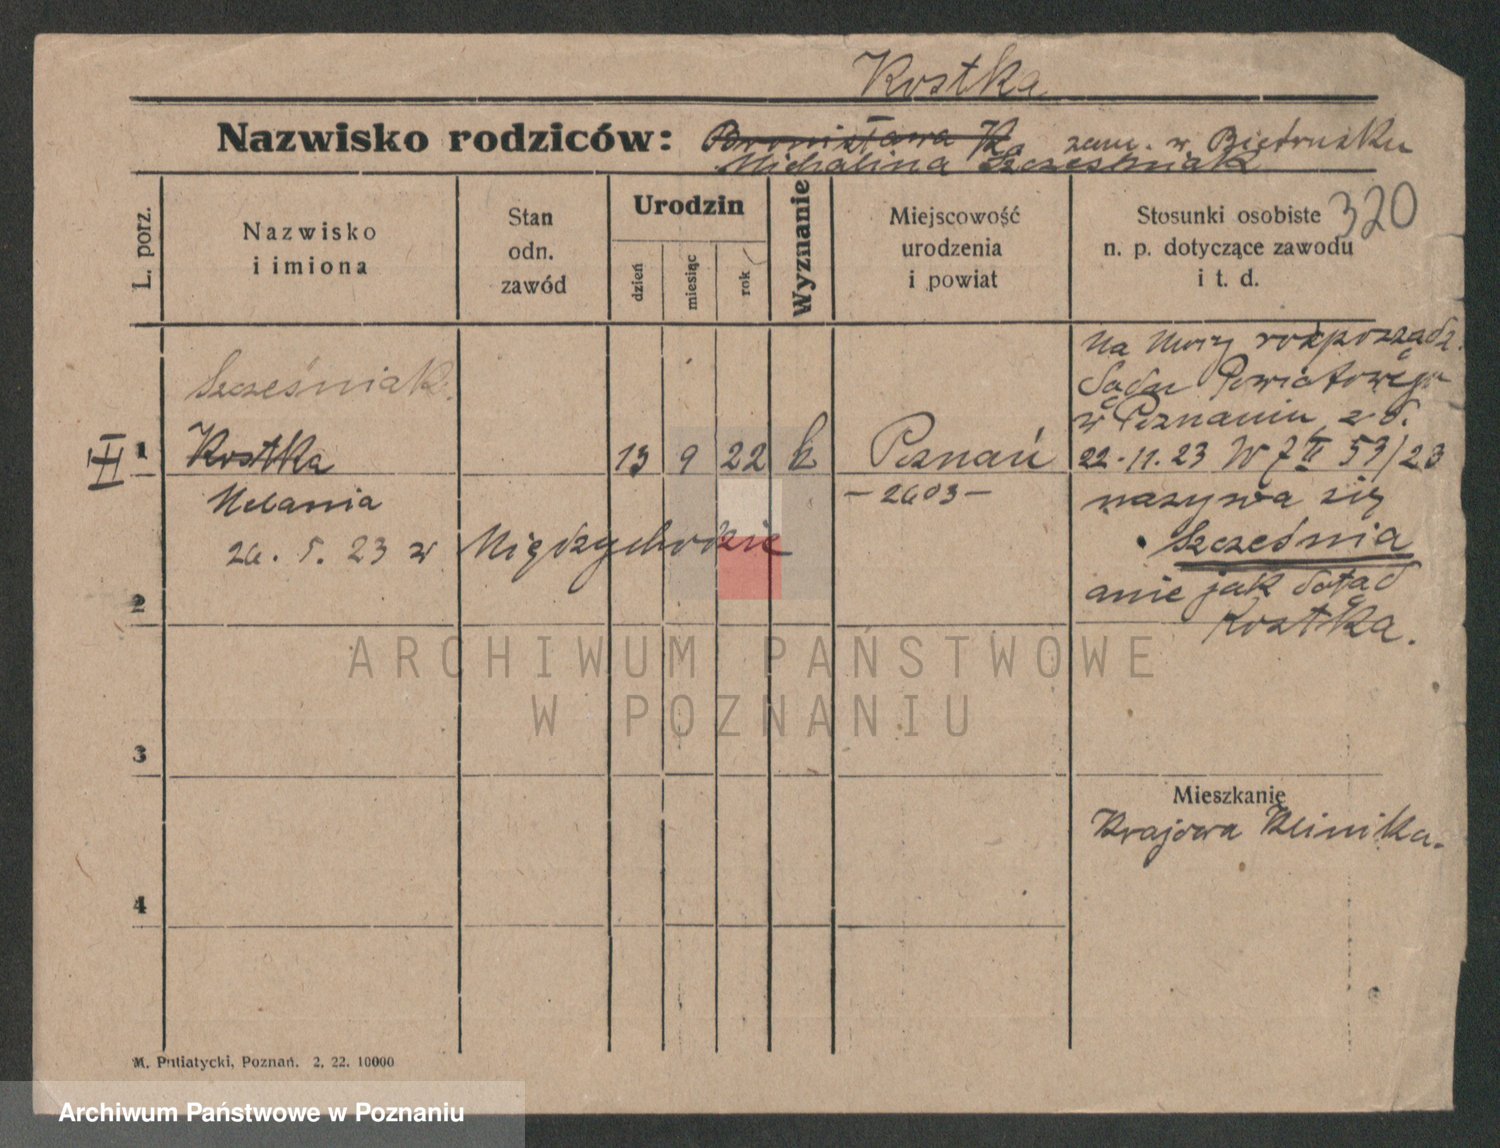 Kostka
Nazwisko rodziców: Bronisława K. zam. w Biedrusku
Michalina Szcześniak
320
L. porz.
Nazwisko
i imiona
Stan
odn.
zawód
Urodzin
dzień
miesiąc
rok
Wyznanie
Miejscowość
urodzenia
i powiat
Stosunki osobiste
n. p. dotyczące zawodu
i t. d.
Szcześniak
III
1 Kostka 13 9 22 k Poznań
Melania - 2603 -
26. 5. 23 w Międzychodzie
2
3
4
Na mocy rozporządz.
Sądu Powiatowego
w Poznaniu z d.
22.11.23 53/23
nazywa się
Szcześnia
anie jak dotąd
Kostka.
Mieszkanie
Krajowa Klinika.
M. Putiatycki, Poznań. 2. 22. 10000
ARCHIWUM PAŃSTWOWE
W POZNANIU
Archiwum Państwowe w Poznaniu